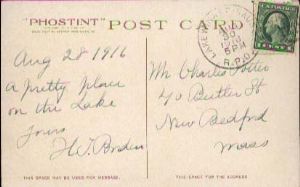 "PHOSTINT" POST CARD
Aug 28 1916
A pretty place
on the Lake
Yours
H.W. Borden
Mr Charles Potter
40 Butler St
New Bedford
Mass
THIS SPACE MAY BE USED FOR MESSAGE.
THIS SPACE FOR THE ADDRESS.
R.P.O.